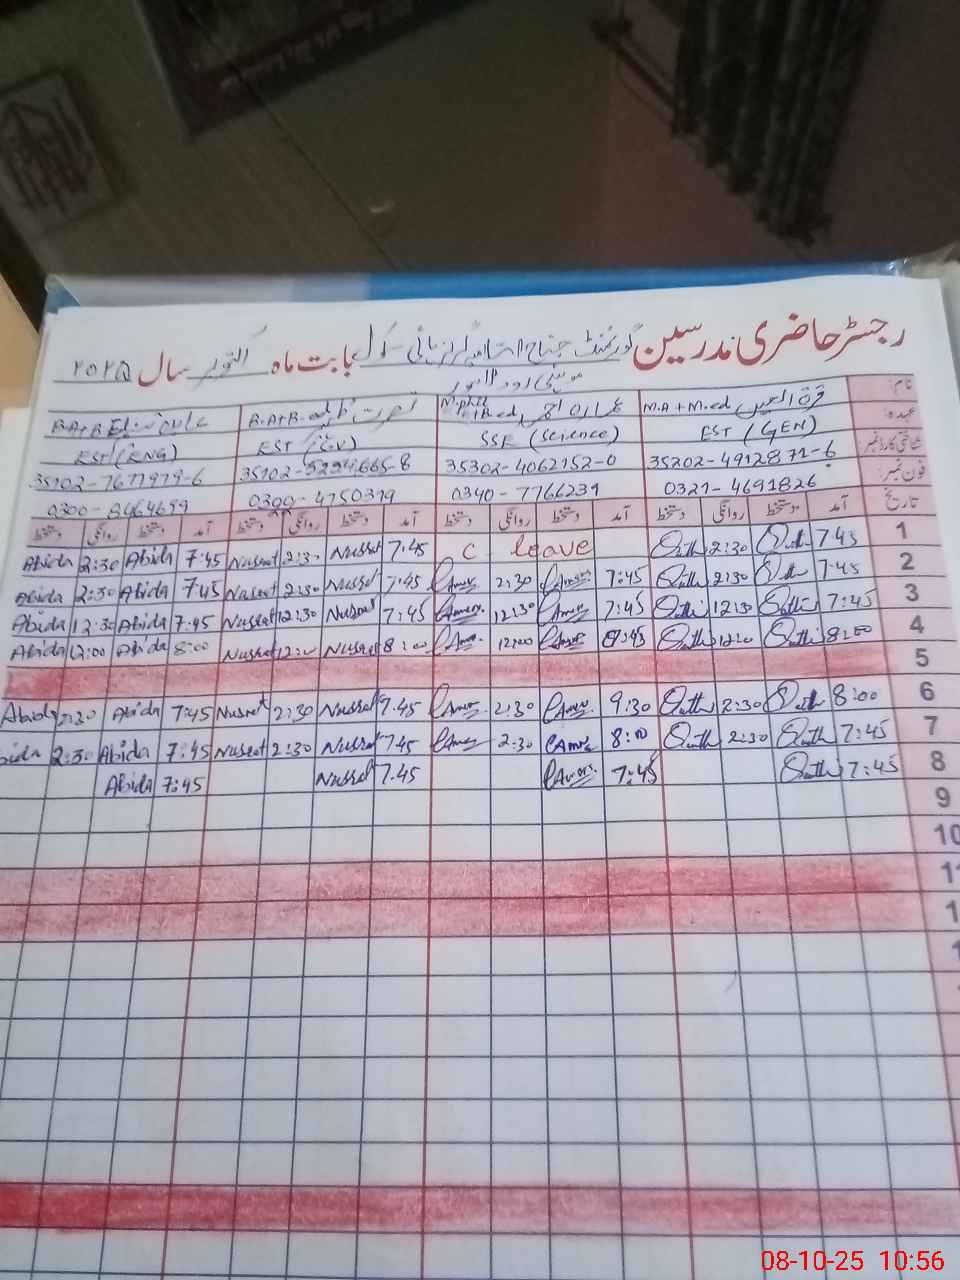 رجسٹر حاضری مدرسین گورنمنٹ جناح اسلامیہ گرلز ہائی سکول بابت ماہ اکتوبر سال ۲۰۲۵
نام: قرۃ العین M.A + M.ed M.phil B.ed نصرت B.A+B.ed B.A+B.Ed
عہدہ: EST (GEN) SSE (Science) EST (CV) EST (ENG)
شناختی کارڈ نمبر: 35202-4912871-6 35302-4062152-0 35102-7677979-6
فون نمبر: 0321-4691826 0340-7766231 0300-4750319 0300-8464699
تاریخ آمد دستخط روانگی دستخط آمد دستخط روانگی دستخط آمد دستخط روانگی دستخط آمد دستخط روانگی دستخط
Abida 2:30 Abida 7:45 Nusrat 2:30 Nusrat 7:45 C leave 2:30 7:45 1
Abida 2:30 Abida 7:45 Nusrat 2:30 Nusrat 7:45 2:30 7:45 2:30 7:45 2
Abida 12:30 Abida 7:45 Nusrat 12:30 Nusrat 7:45 12:30 7:45 12:30 7:45 3
Abida 12:00 Abida 8:00 Nusrat Nusrat 8:00 12:00 8:00 4
5
Abida 2:30 Abida 7:45 Nusrat 2:30 Nusrat 7:45 2:30 9:30 2:30 8:00 6
bida 2:30 Abida 7:45 Nusrat 2:30 Nusrat 7:45 2:30 8:00 2:30 7:45 7
Abida 7:45 Nusrat 7:45 7:45 7:45 8
9
10
11
1
08-10-25 10:56